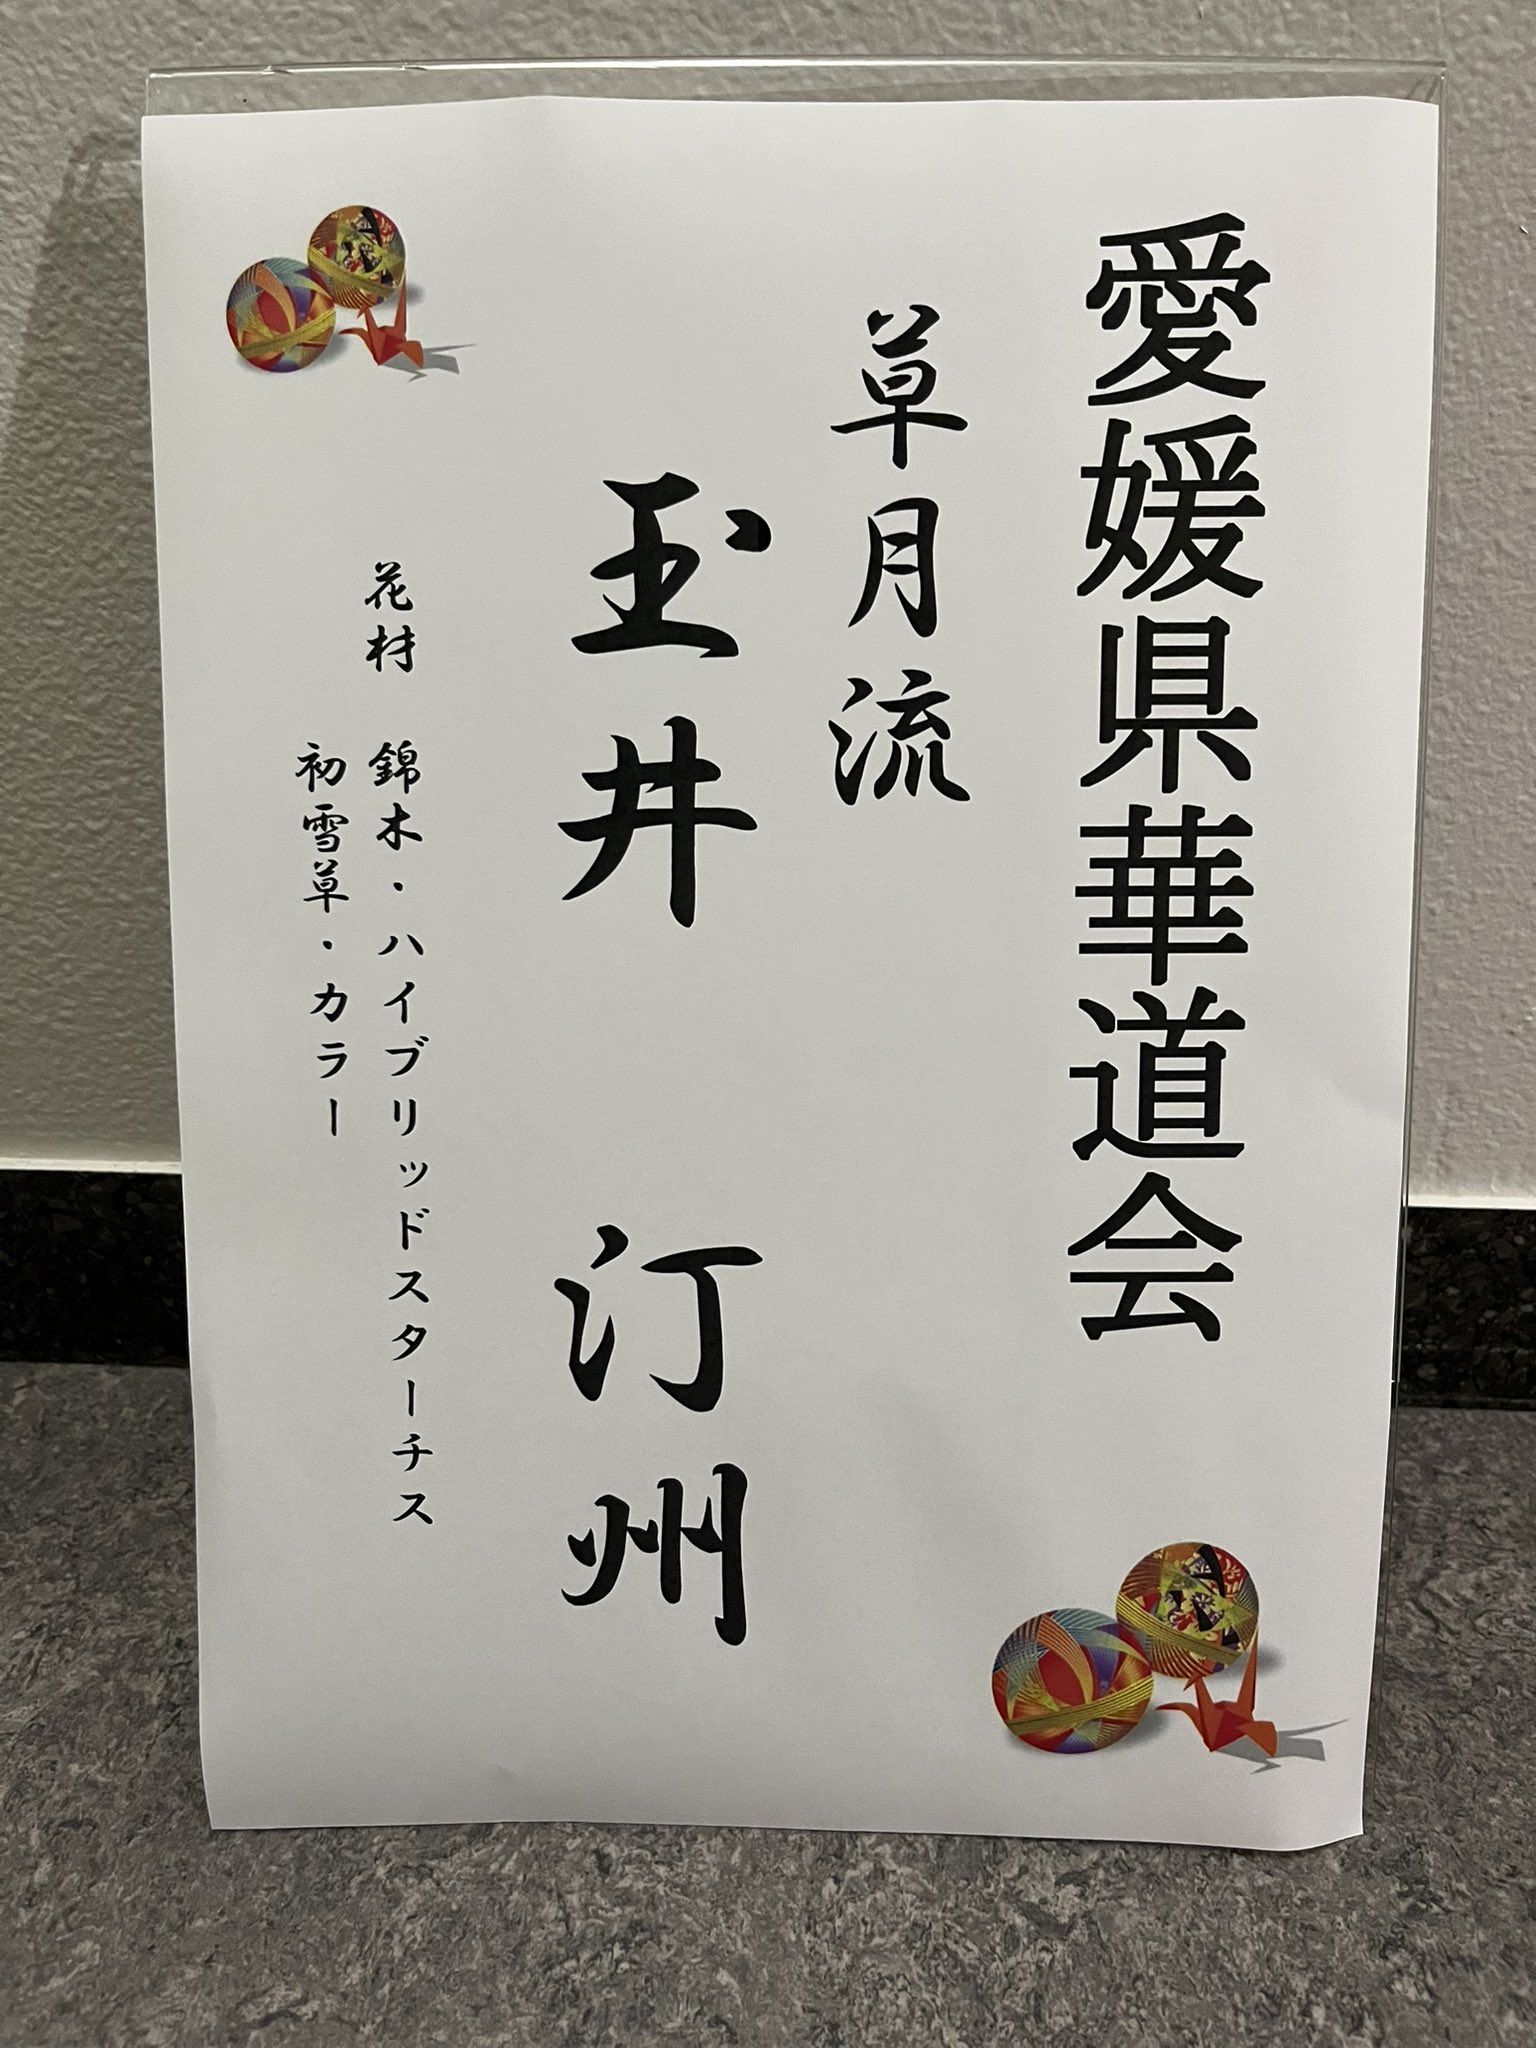 愛媛県華道会
草月流
玉井　汀州
花材　錦木・ハイブリッドスターチス
初雪草・カラー